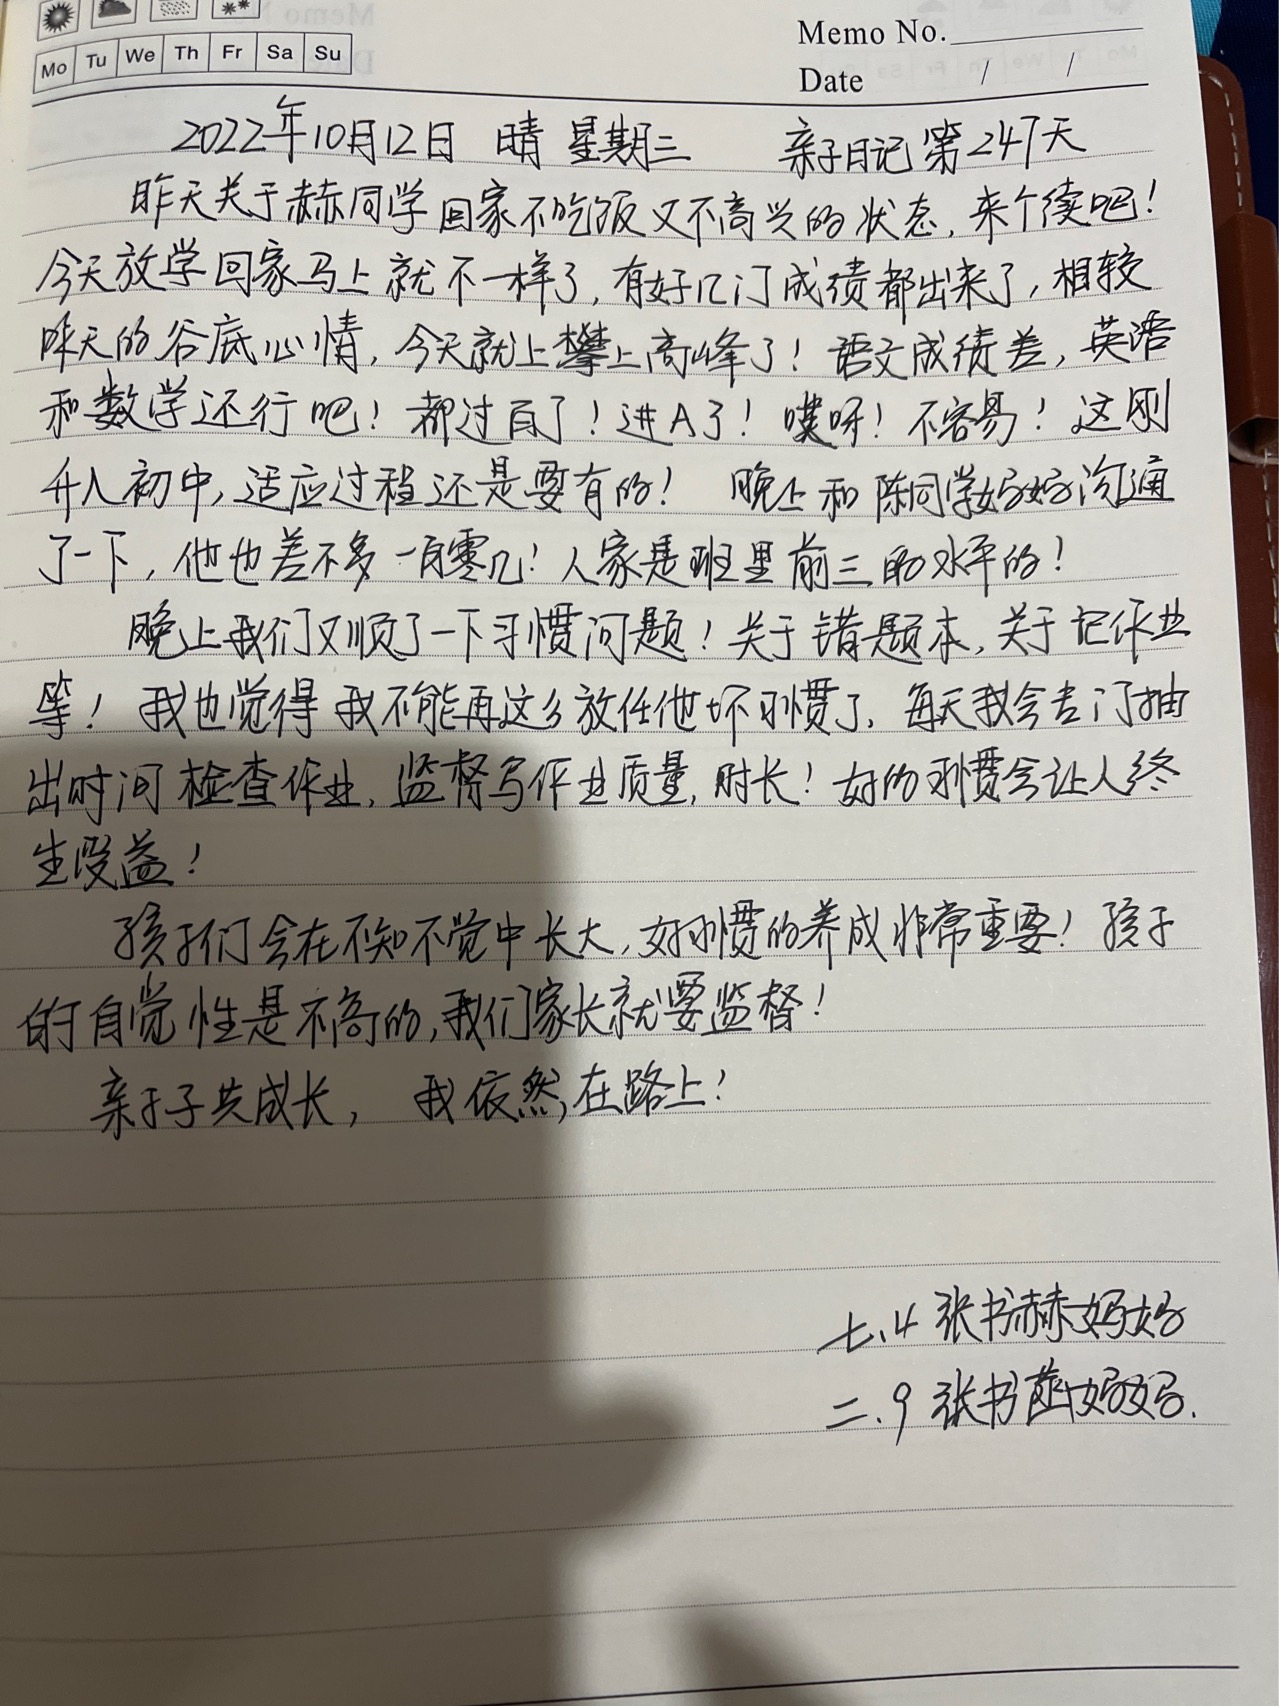 Mo Tu We Th Fr Sa Su
Memo No.
Date / /
2022年10月12日 晴 星期三 亲子日记第247天
昨天关于赫同学回家不吃饭又不高兴的状态,来个续吧!
今天放学回家马上就不一样了,有好几门成绩都出来了,相较
昨天的谷底心情,今天就上攀上高峰了!语文成绩差,英语
和数学还行吧!都过百了!进A了!噗呀!不容易!这刚
升入初中,适应过程还是要有的! 晚上和陈同学妈妈沟通
了一下,他也差不多一百零几!人家是班里前三的水平的!
晚上我们又顺了一下习惯问题!关于错题本,关于记作业
等!我也觉得我不能再这么放任他坏习惯了,每天我会专门抽
出时间检查作业,监督写作业质量,时长!好的习惯会让人终
生受益!
孩子们会在不知不觉中长大,好习惯的养成非常重要!孩子
的自觉性是不高的,我们家长就要监督!
亲子子共成长, 我依然,在路上!
七.4 张书赫妈妈
二.9 张书菡妈妈.